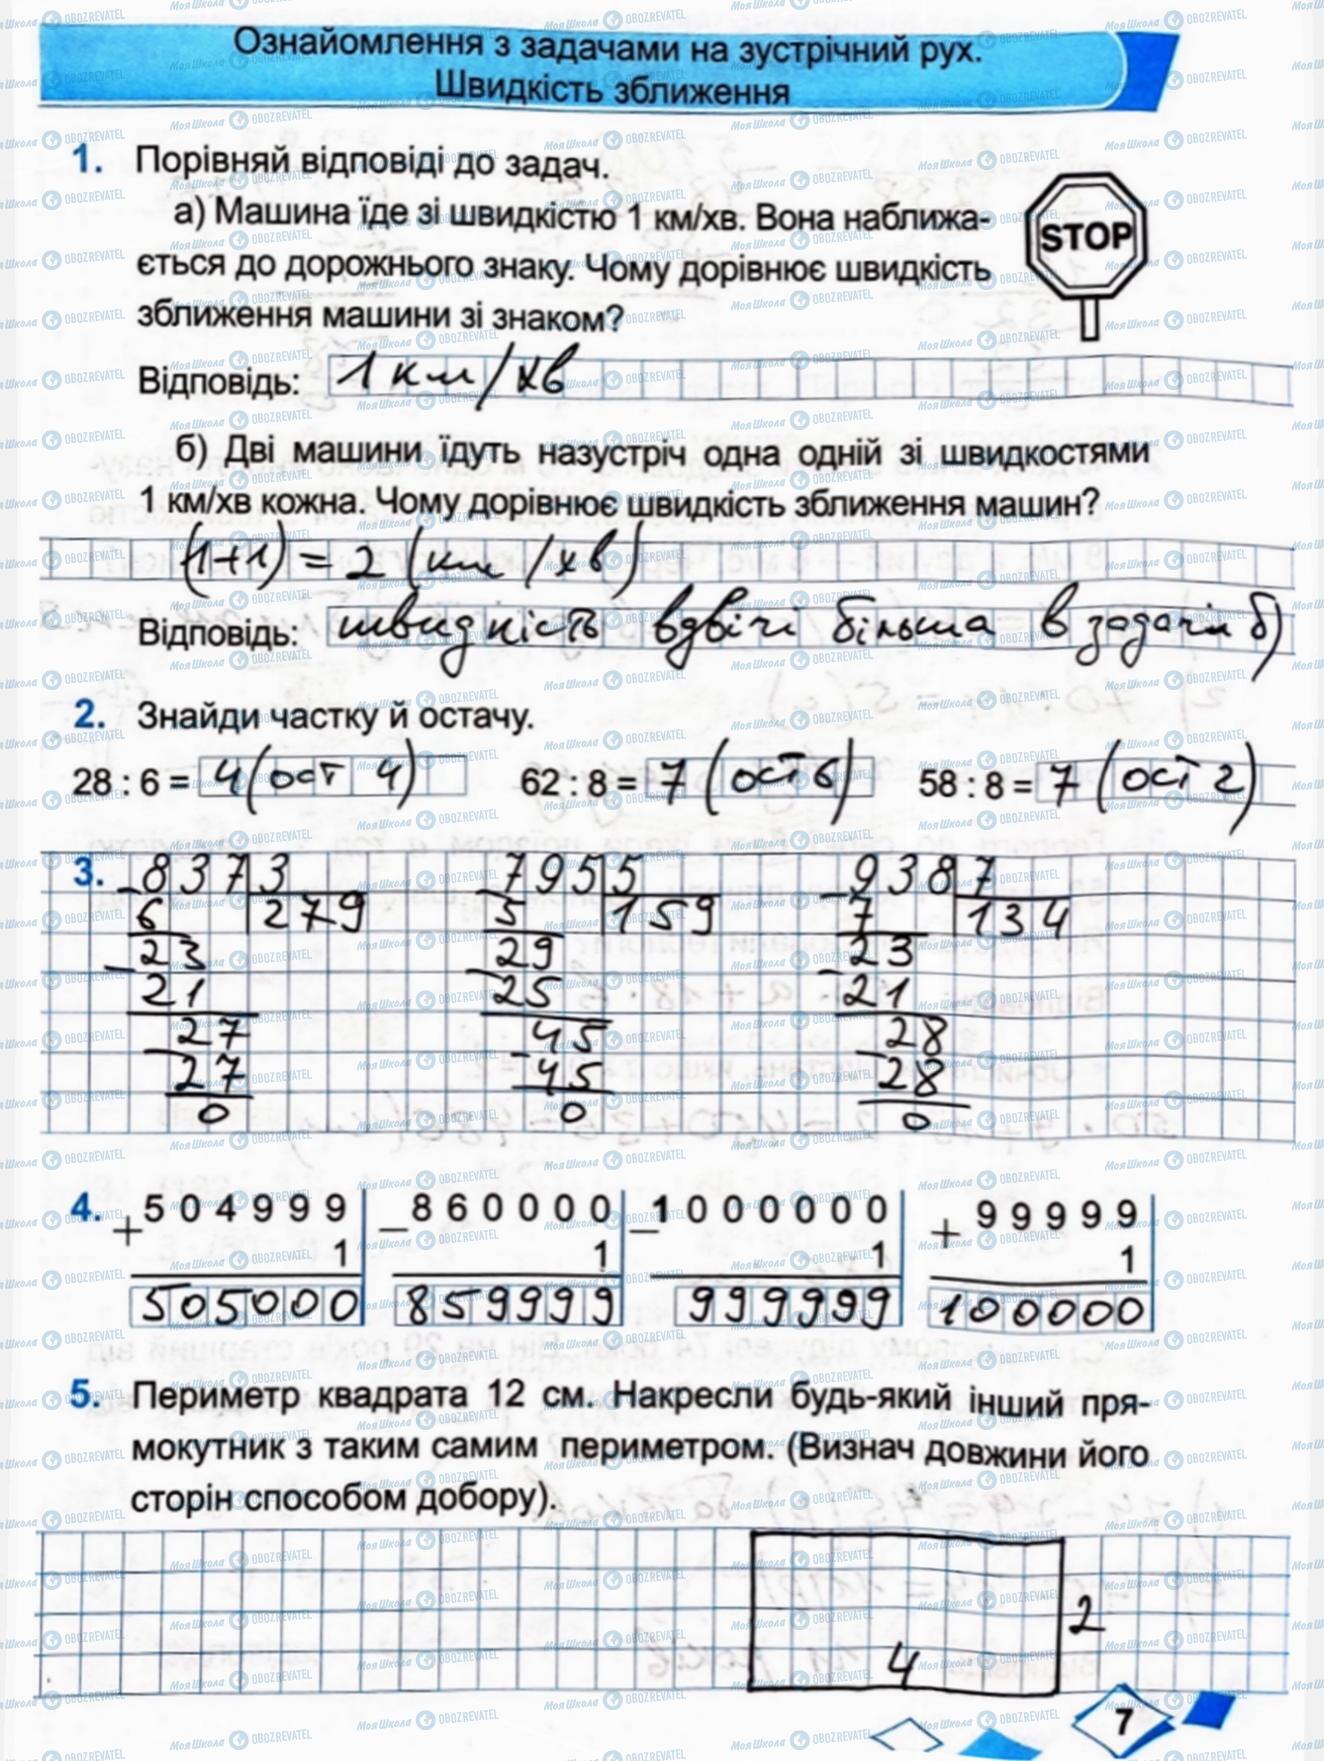 Ознайомлення з задачами на зустрічний рух.
Швидкість зближення
1. Порівняй відповіді до задач.
а) Машина їде зі швидкістю 1 км/хв. Вона наближа-
ється до дорожнього знаку. Чому дорівнює швидкість
зближення машини зі знаком?
STOP
Відповідь: 1 км/хв
б) Дві машини їдуть назустріч одна одній зі швидкостями
1 км/хв кожна. Чому дорівнює швидкість зближення машин?
(1+1) = 2 (км/хв)
Відповідь: швидкість вдвічі більша в задачі б)
2. Знайди частку й остачу.
28 : 6 = 4 (ост 4) 62 : 8 = 7 (ост 6) 58 : 8 = 7 (ост 2)
3. - 837 3 - 795 5 - 938 7
6 279 5 159 7 134
- 23 - 29 - 23
21 25 21
- 27 - 45 - 28
27 45 28
0 0 0
4. + 504999 - 860000 - 1000000 + 99999
1 1 1 1
505000 859999 999999 100000
5. Периметр квадрата 12 см. Накресли будь-який інший пря-
мокутник з таким самим периметром. (Визнач довжини його
сторін способом добору).
2
4
7
МояШкола OBOZREVATEL